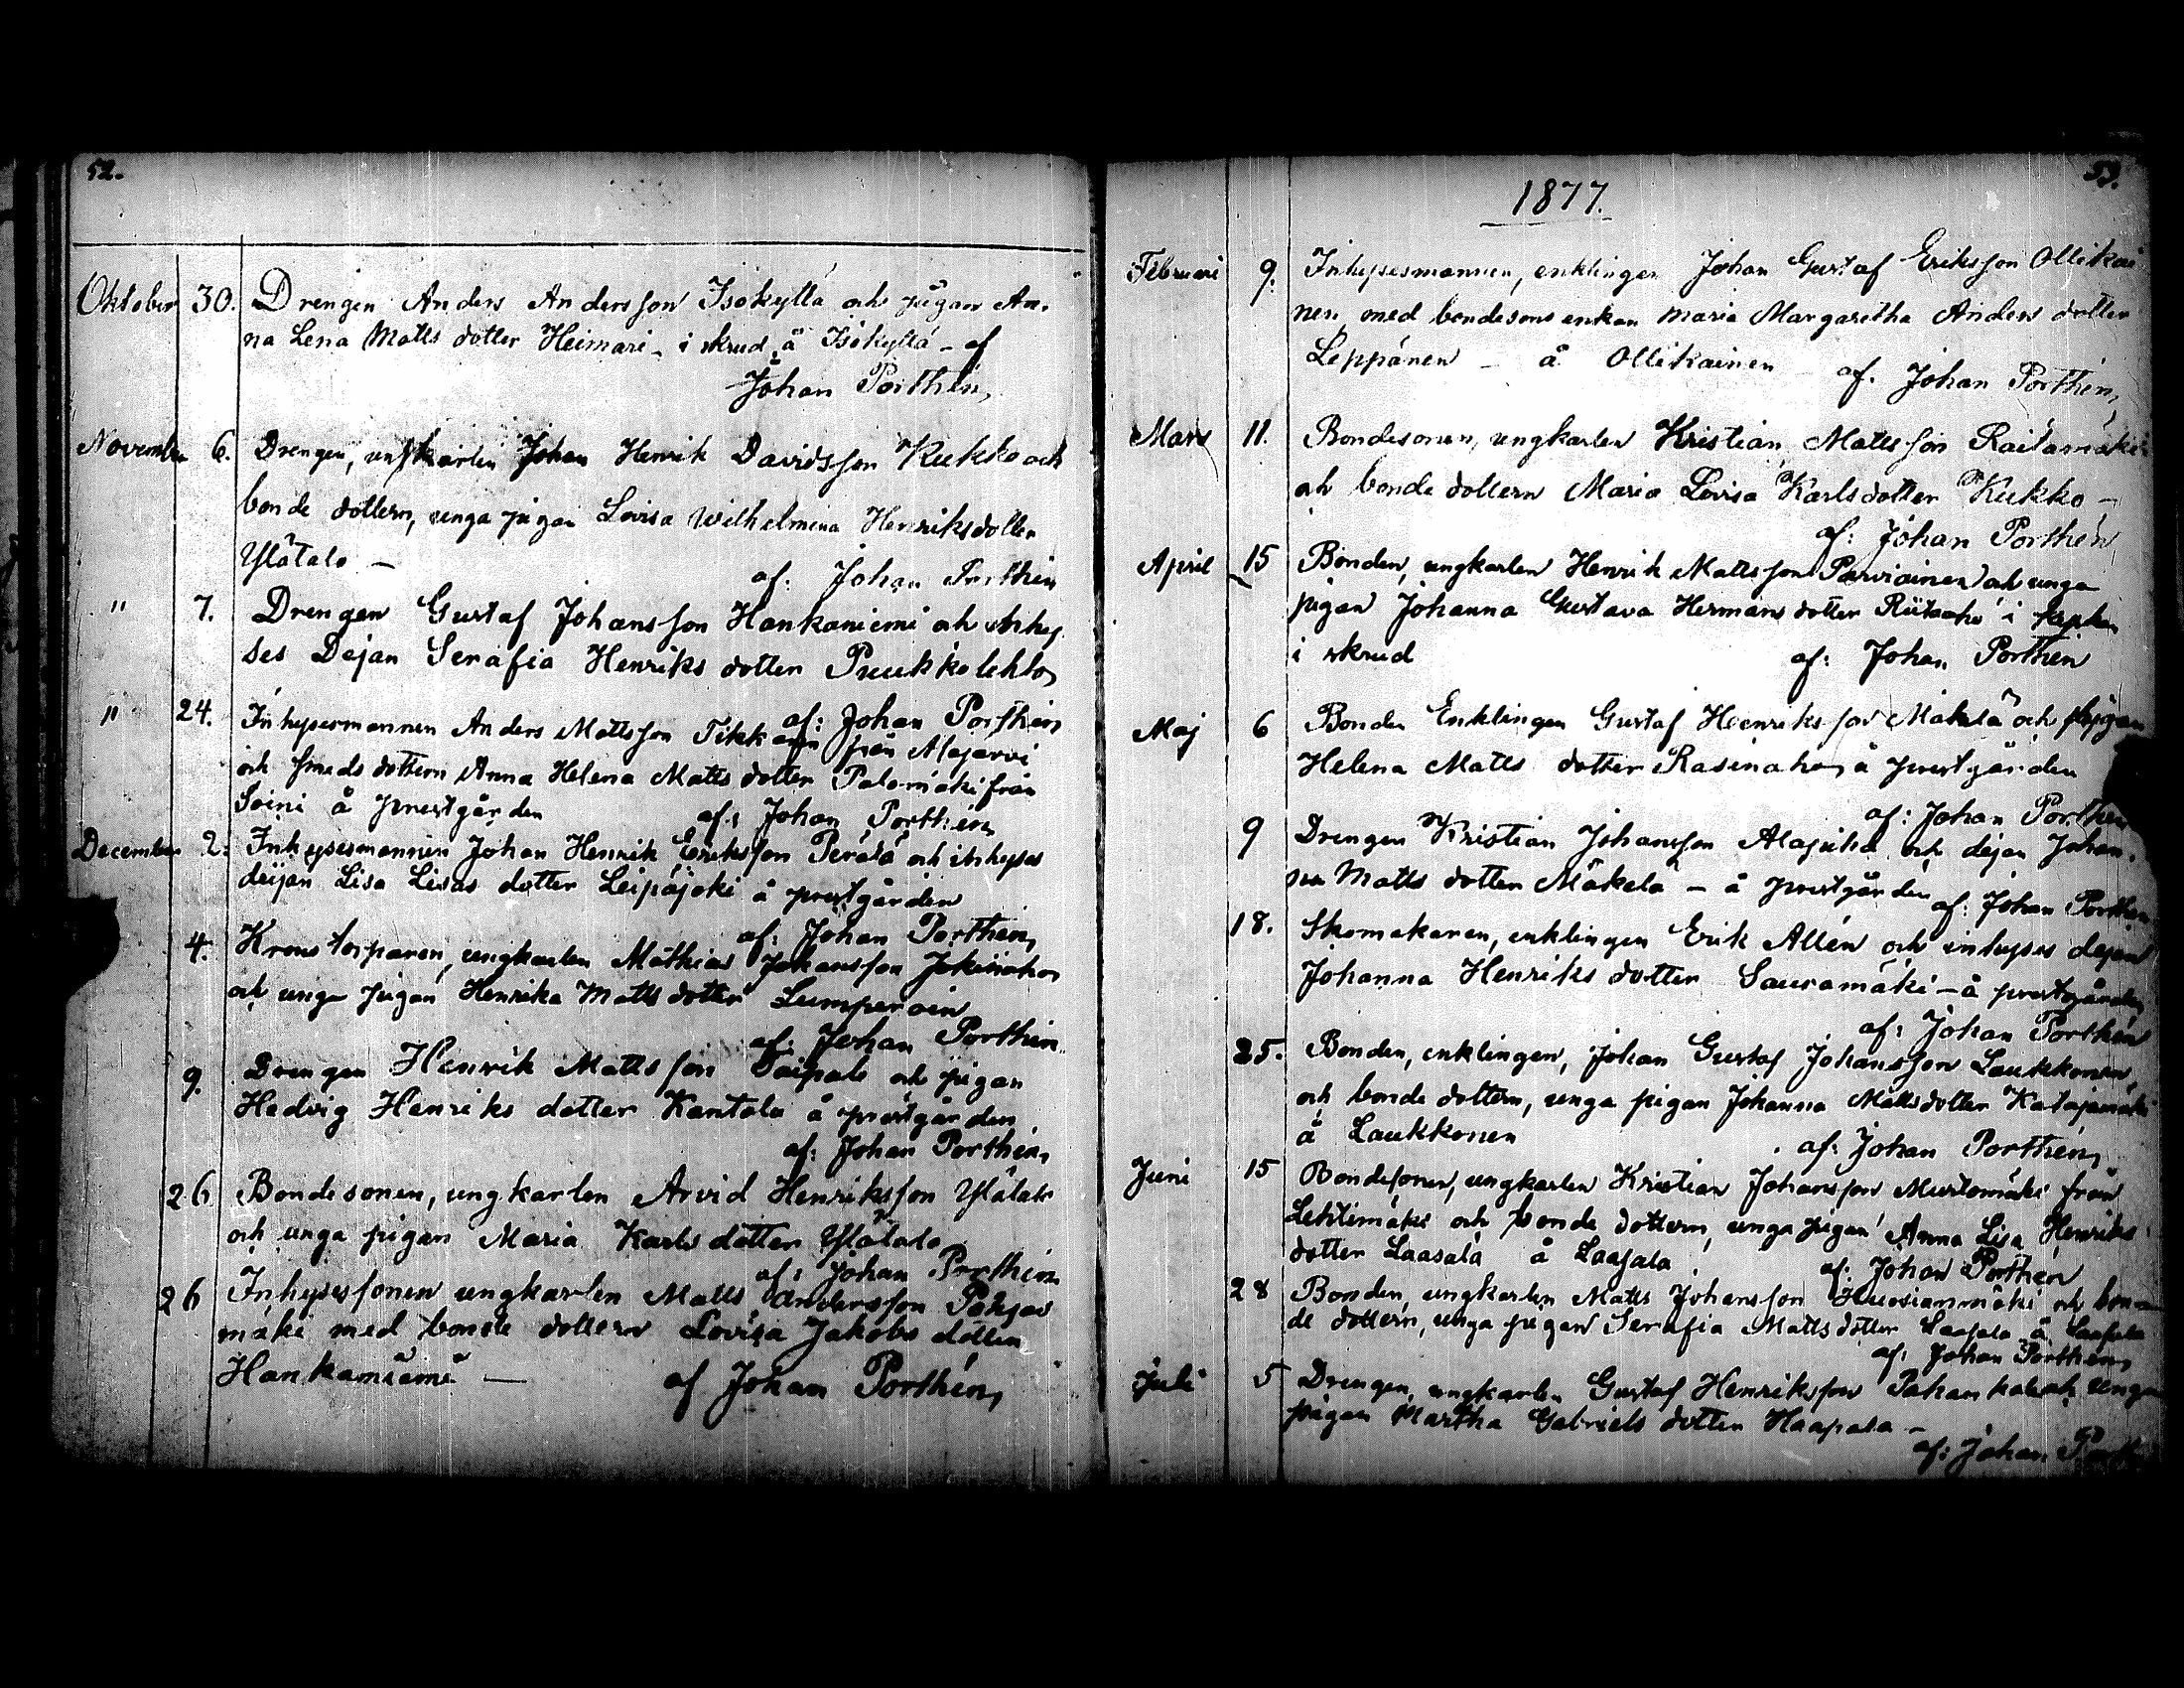 52.
Oktober 30. Drengen Anders Andersson Isokyllä och pigan An-
na Lena Matts dotter Heimari - i skrud å Isokyllä - af
Johan Porthén,
November 6. Drengen, ungkarlen Johan Henrik Davidsson Kukko och
bonde dottern, unga pigan Lovisa Wilhelmina Henriksdotter
Ylätalo -
af: Johan Porthén
" 7. Drengen Gustaf Johansson Hankaniemi och inhy
ses Dejan Serafia Henriks dotter Puukkolehto,
af: Johan Porthén,
" 24. Inhysesmannen Anders Mattsson Tikkanen från Alajärvi
och smeds dottern Anna Helena Matts dotter Palomäki från
Soini å prestgården
af: Johan Porthén,
December 2. Inhysesmannen Johan Henrik Eriksson Perälä och inhyses
deijan Lisa Lisas dotter Leipäjoki å prestgården
af: Johan Porthén,
4. Krono torparen, ungkarlen Mathias Johansson
och unga pigan Henrika Matts dotter Lumperoin
af: Johan Porthén
9. Drengen Henrik Matts son Saipale och pigan
Hedvig Henriks dotter Kantola å prestgården
af: Johan Porthén,
26 Bondesonen, ungkarlen Arvid Henriksson Ylätalo
och unga pigan Maria Karls dotter Ylätalo
af: Johan Porthén
26 Inhysessonen ungkarlen Matts Andersson Pohjas
mäki med bonde dottern Lovisa Jakobs dotter
Hankaniemi -
af Johan Porthén,
53.
1877.
Februari 9. Inhysesmannen, enklingen Johan Gustaf Eriksson Ollikai
nen med bondesons enkan Maria Margaretha Anders dotter
Leppänen - å Ollikainen
af. Johan Porthén,
Mars 11. Bondesonen, ungkarlen Kristian Matts son Raitamäki
och bonde dottern Maria Lovisa Karlsdotter Kukko -
af: Johan Porthén,
April 15 Bonden, ungkarlen Henrik Mattsson Parviainen och unga
pigan Johanna Gustava Hermans dotter Riitaaho i kyrkan
i skrud
af: Johan Porthén
Maj 6 Bonden Enklingen Gustaf Henriksson Mäkelä och pigan
Helena Matts dotter Rasinaho, å prestgården
af: Johan Porthén
9 Drengen Kristian Johansson Alapiha och dejan Johan-
na Matts dotter Mäkelä - å prestgården
af: Johan Porthén
18. Skomakaren, enklingen Erik Allén och inhyses dejan
Johanna Henriks dotter Sauramäki - å prestgården
af: Johan Porthén
25. Bonden, enklingen, Johan Gustaf Johansson Laukkonen
och bonde dottern, unga pigan Johanna Mattsdotter Katajamäki
å Laukkonen
af: Johan Porthén,
Juni 15 Bondesonen, ungkarlen Kristian Johansson Murtomäki från
Lehtimäki och bonde dottern, unga pigan Anna Lisa Henriks
dotter Laasala å Laasala
af: Johan Porthén
28 Bonden, ungkarlen Matts Johansson Huosianmäki och bon-
de dottern, unga pigan Serafia Matts dotter Laasala å Laasala
af: Johan Porthén,
Juli 5 Drengen, ungkarlen Gustaf Henriksson och unga
pigan Martha Gabriels dotter Haapala -
af: Johan Porthén